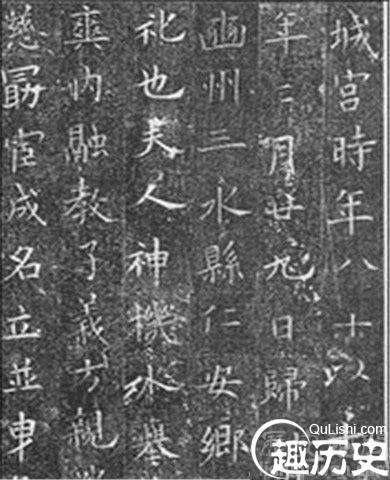 城宮時年八十以
年二月廿九日歸
幽州三水縣仁安鄉
礼也夫人神機
爽内融教子義方親
慈勗宦成名立並
趣历史
QuLishi.com